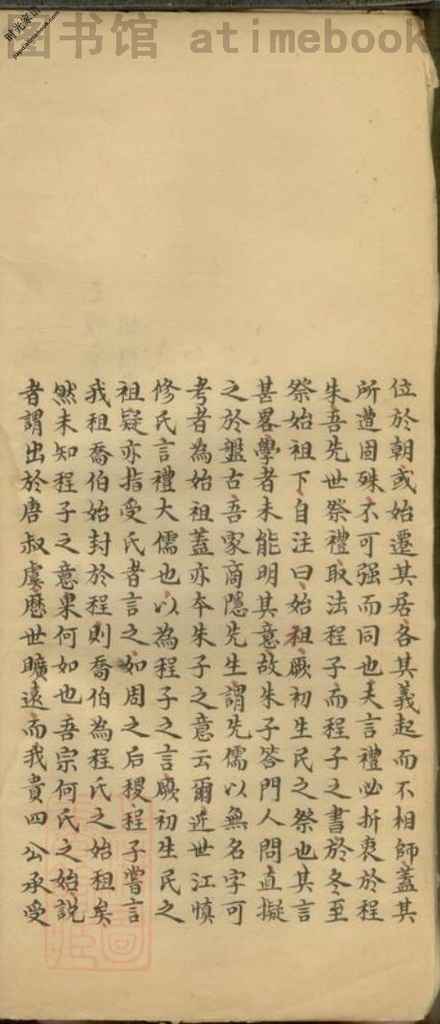 图书馆 atimebook
位於朝或始遷其居各其義起而不相師蓋其
所遭固殊不可强而同也夫言禮必折衷於程
朱吾先世祭禮取法程子而程子之書於冬至
祭始祖下自注曰始祖厥初生民之祭也其言
甚畧學者未能明其意故朱子答門人問直擬
之於盤古吾家商隱先生謂先儒以無名字可
考者為始祖蓋亦夲朱子之意云爾近世江慎
修氏言禮大儒也以為程子之言厥初生民之
祖疑亦指受氏者言之如周之后稷程子嘗言
我祖喬伯始封於程則喬伯為程氏之始祖矣
然未知程子之意果何如也吾宗何氏之始説
者謂出於唐叔虞厯世曠遠而我貴四公承受